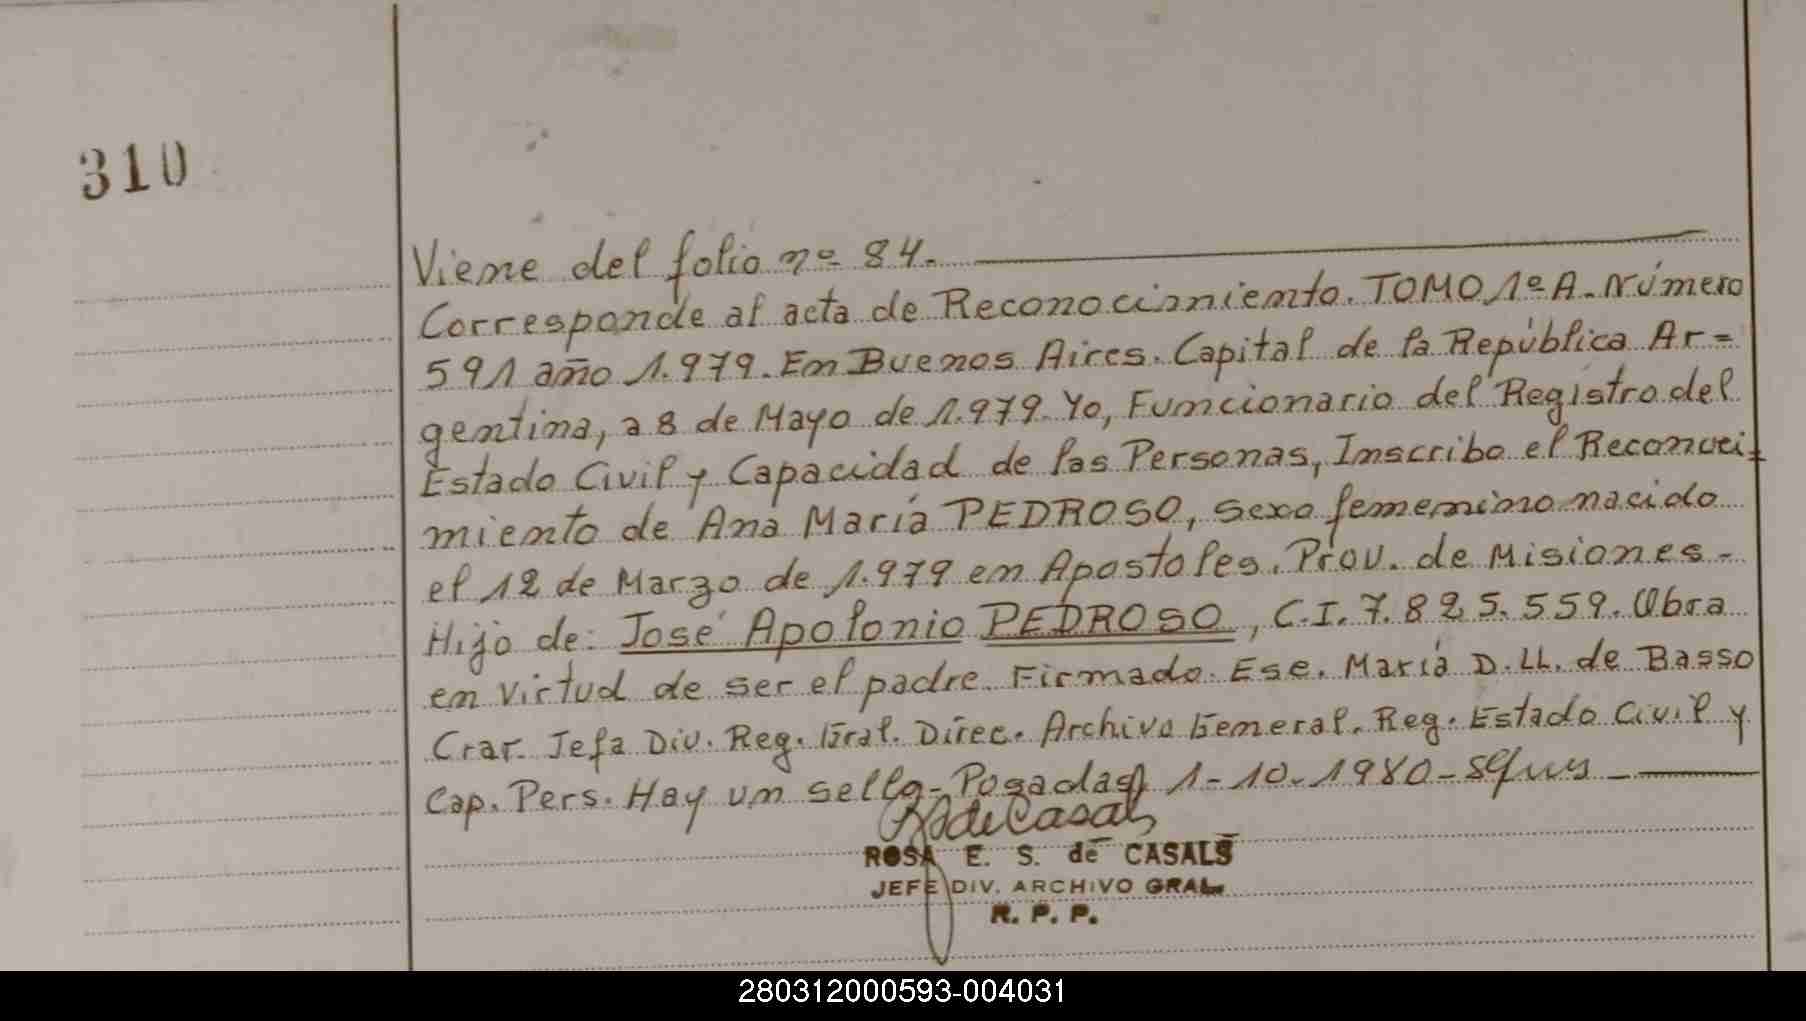 310
Viene del folio nº 84.
Corresponde al acta de Reconocimiento. TOMO 1º A. Número
591 año 1.979. En Buenos Aires. Capital de la República Ar=
gentina, a 8 de Mayo de 1.979. Yo, Funcionario del Registro del
Estado Civil y Capacidad de las Personas, Inscribo el Reconoci=
miento de Ana María PEDROSO, sexo femenino nacido
el 12 de Marzo de 1.979 en Apostoles. Prov. de Misiones -
Hijo de: José Apolonio PEDROSO, C.I. 7.825.559. Obra
en virtud de ser el padre. Firmado. Ese. María D. LL. de Basso
Crar. Jefa Div. Reg. Gral. Direc. Archivo General. Reg. Estado Civil y
Cap. Pers. Hay un sello - Posadas, 1-10-1980 -
RS de Casals
ROSA E. S. de CASALS
JEFE DIV. ARCHIVO GRAL.
R. P. P.
280312000593-004031